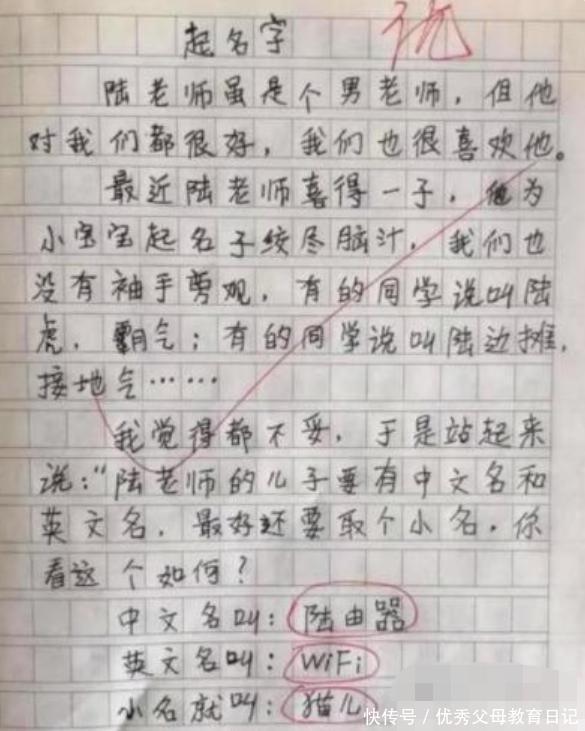 起名字
优
陆老师虽是个男老师，但他
对我们都很好，我们也很喜欢他。
最近陆老师喜得一子，他为
小宝宝起名子绞尽脑汁，我们也
没有袖手旁观，有的同学说叫陆
虎，霸气；有的同学说叫陆边摊，
接地气……
我觉得都不妥，于是站起来
说：“陆老师的儿子要有中文名和
英文名，最好还要取个小名，你
看这个如何？
中文名叫：陆由器
英文名叫：WiFi
小名就叫：猫儿
快传号／优秀父母教育日记